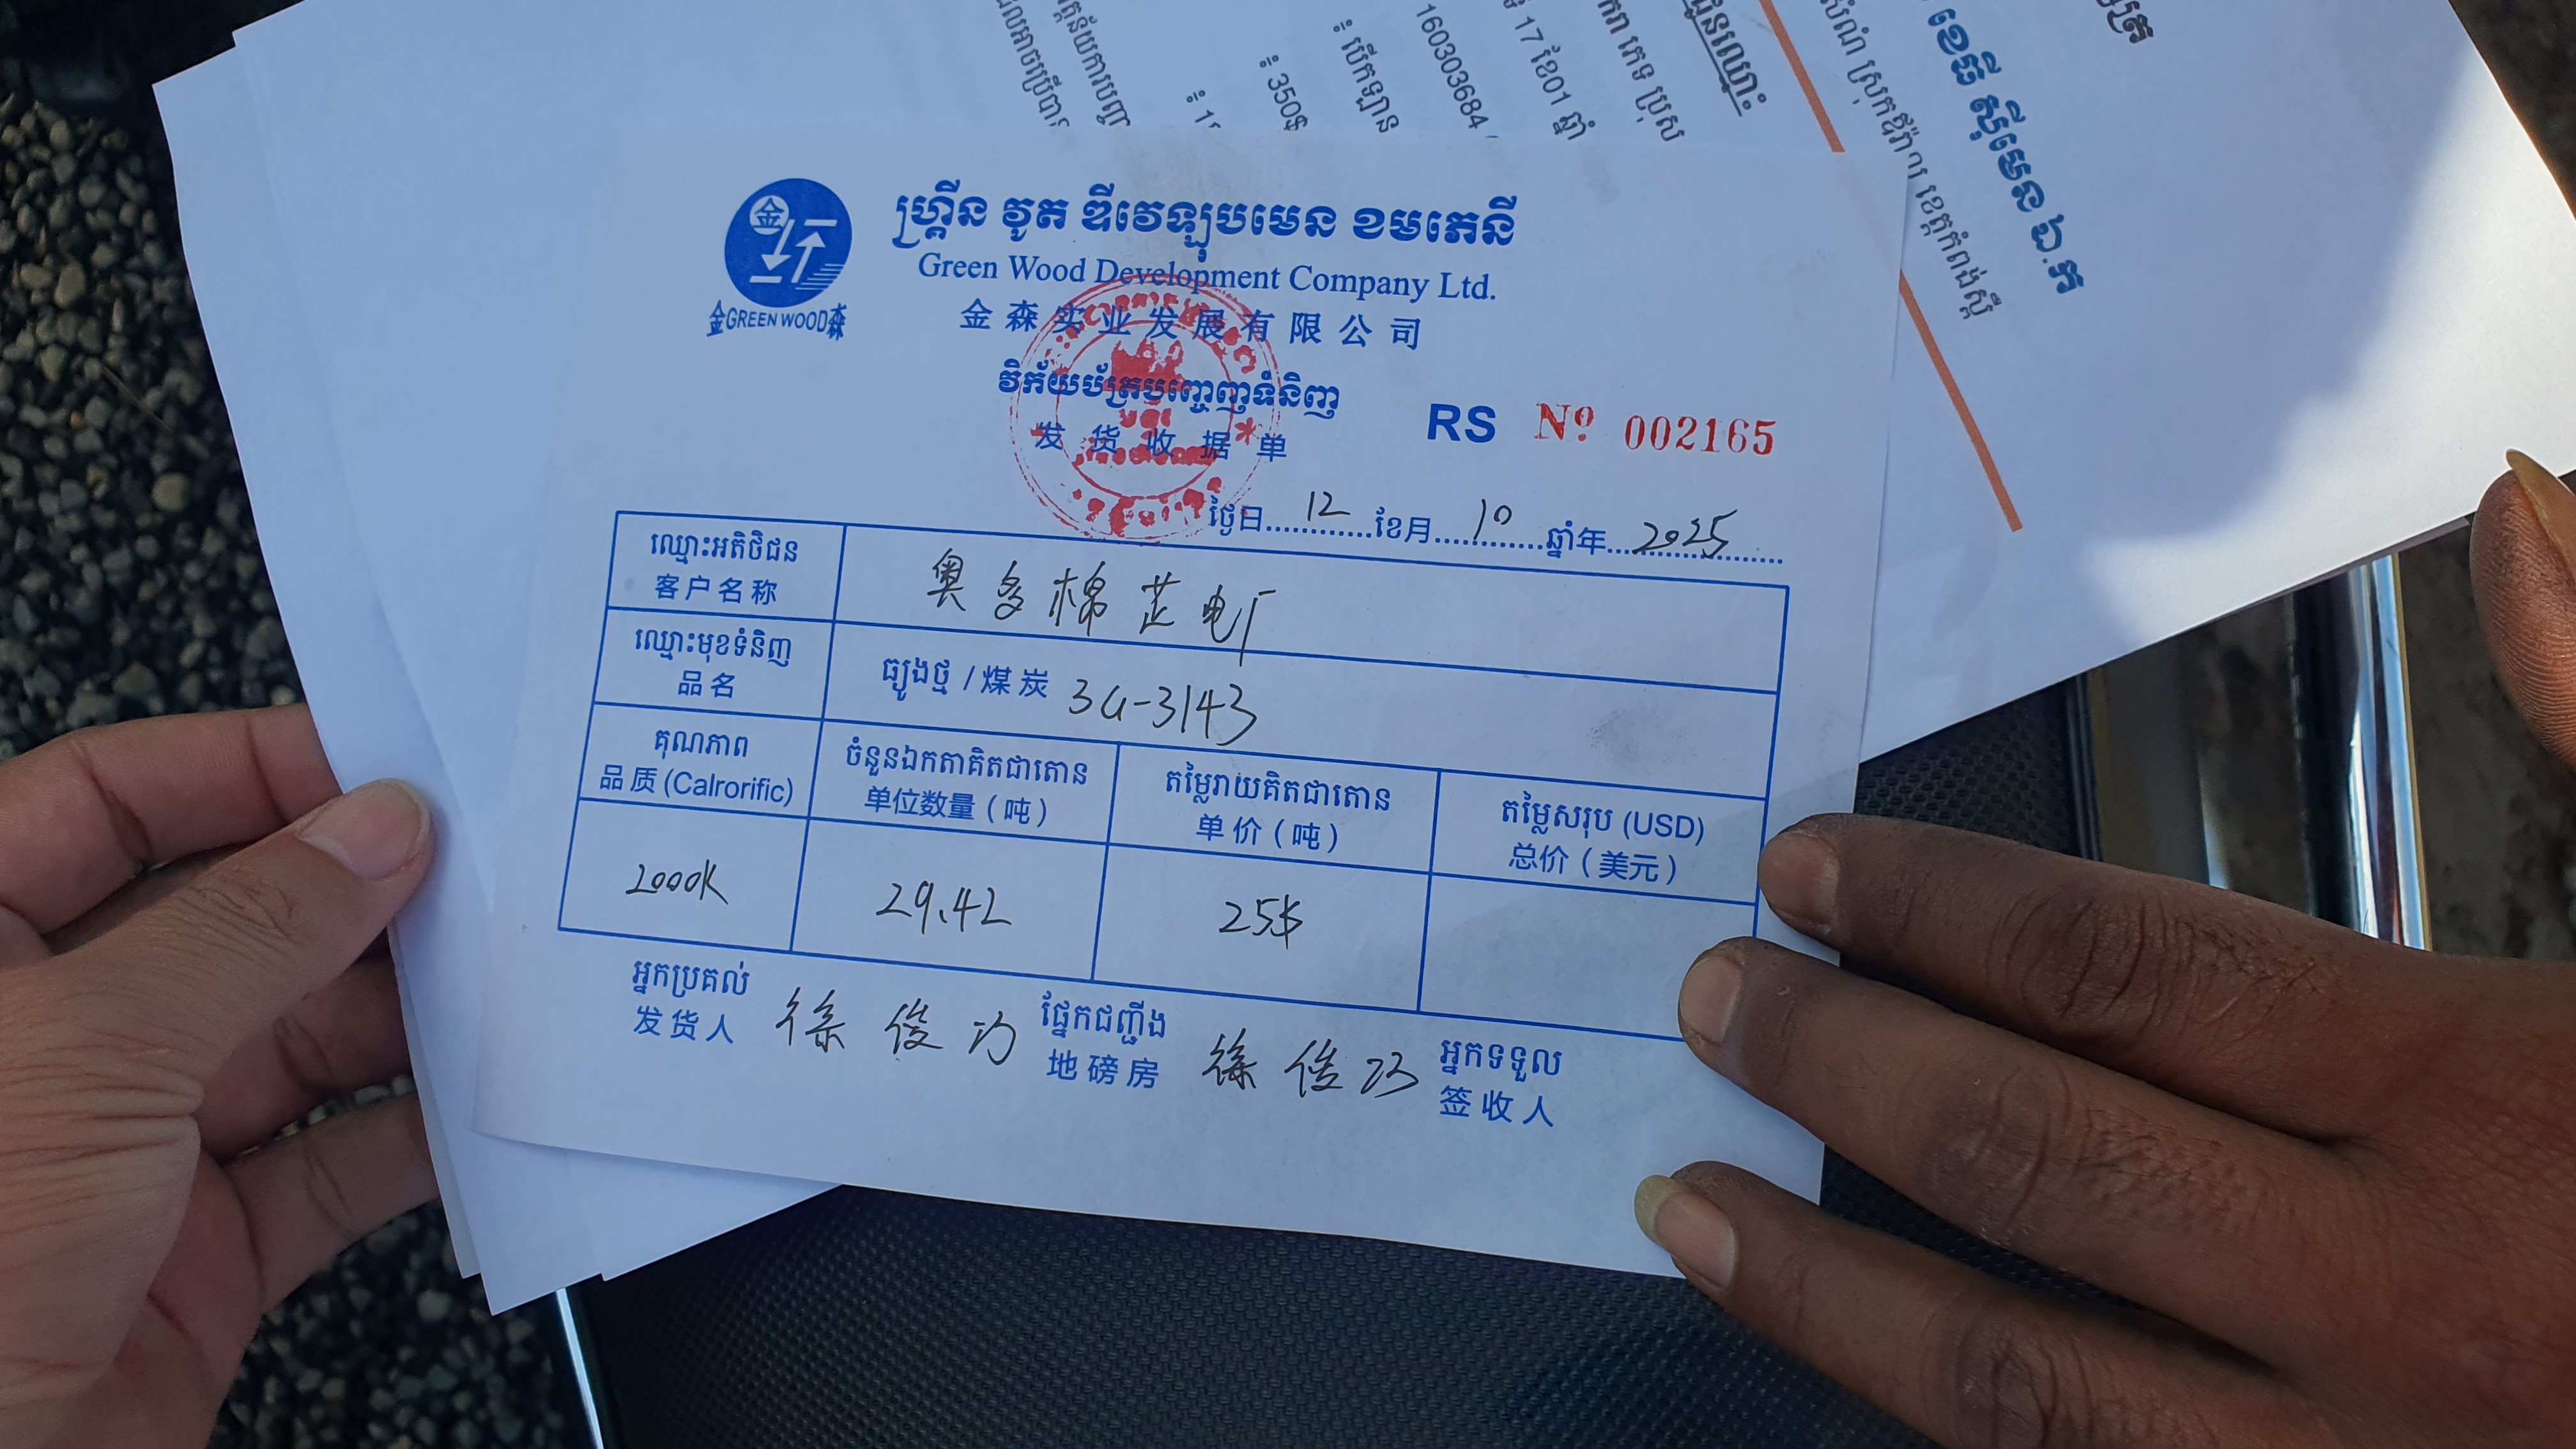 ហ្គ្រីន វូត ឌីវេឡុបមេន ខមភេនី
Green Wood Development Company Ltd.
金森实业发展有限公司
金GREEN WOOD森
វិក័យប័ត្របញ្ចេញទំនិញ
发货收据单
RS Nº 002165
ថ្ងៃ日 12 ខែ月 10 ឆ្នាំ年 2025
ឈ្មោះអតិថិជន
客户名称
奥多棉芷电厂
ឈ្មោះមុខទំនិញ
品名
ធ្យូងថ្ម / 煤炭 3G-3143
គុណភាព
品质(Calrorific)
ចំនួនឯកតាគិតជាតោន
单位数量(吨)
តម្លៃរាយគិតជាតោន
单价(吨)
តម្លៃសរុប (USD)
总价(美元)
2000K
29.42
25$
អ្នកប្រគល់
发货人
徐俊巧
ផ្នែកជញ្ជីង
地磅房
徐俊巧
អ្នកទទួល
签收人
160303684
17 ខែ01 ឆ្នាំ
បើកឡាន
ភេទ ប្រុស
ស្រុកឱរ៉ាល ខេត្តកំពង់ស្ពឺ
ខេធី ស៊ីមេន ឯ.ក